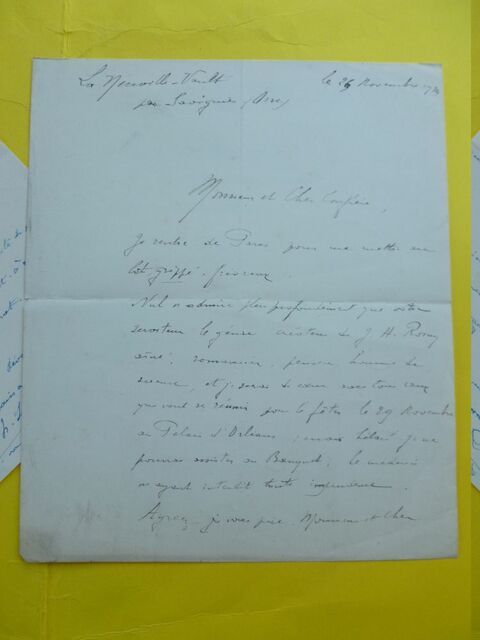 La Neuville-Vault
le 26 Novembre
par Savignies (Oise)
Monsieur et Cher Confrère,
Je rentre de Paris pour me mettre au
lit, grippé, fiévreux.
Nul n'admire plus profondément que votre
serviteur le génie créateur de J. H. Rosny
aîné, romancier, penseur, homme de
science, et je serai de cœur avec tous ceux
qui vont se réunir pour le fêter le 29 Novembre
au Palais d'Orléans, mais hélas! je ne
pourrai assister au Banquet, le médecin
m'ayant interdit toute imprudence.
Agréez, je vous prie, Monsieur et Cher